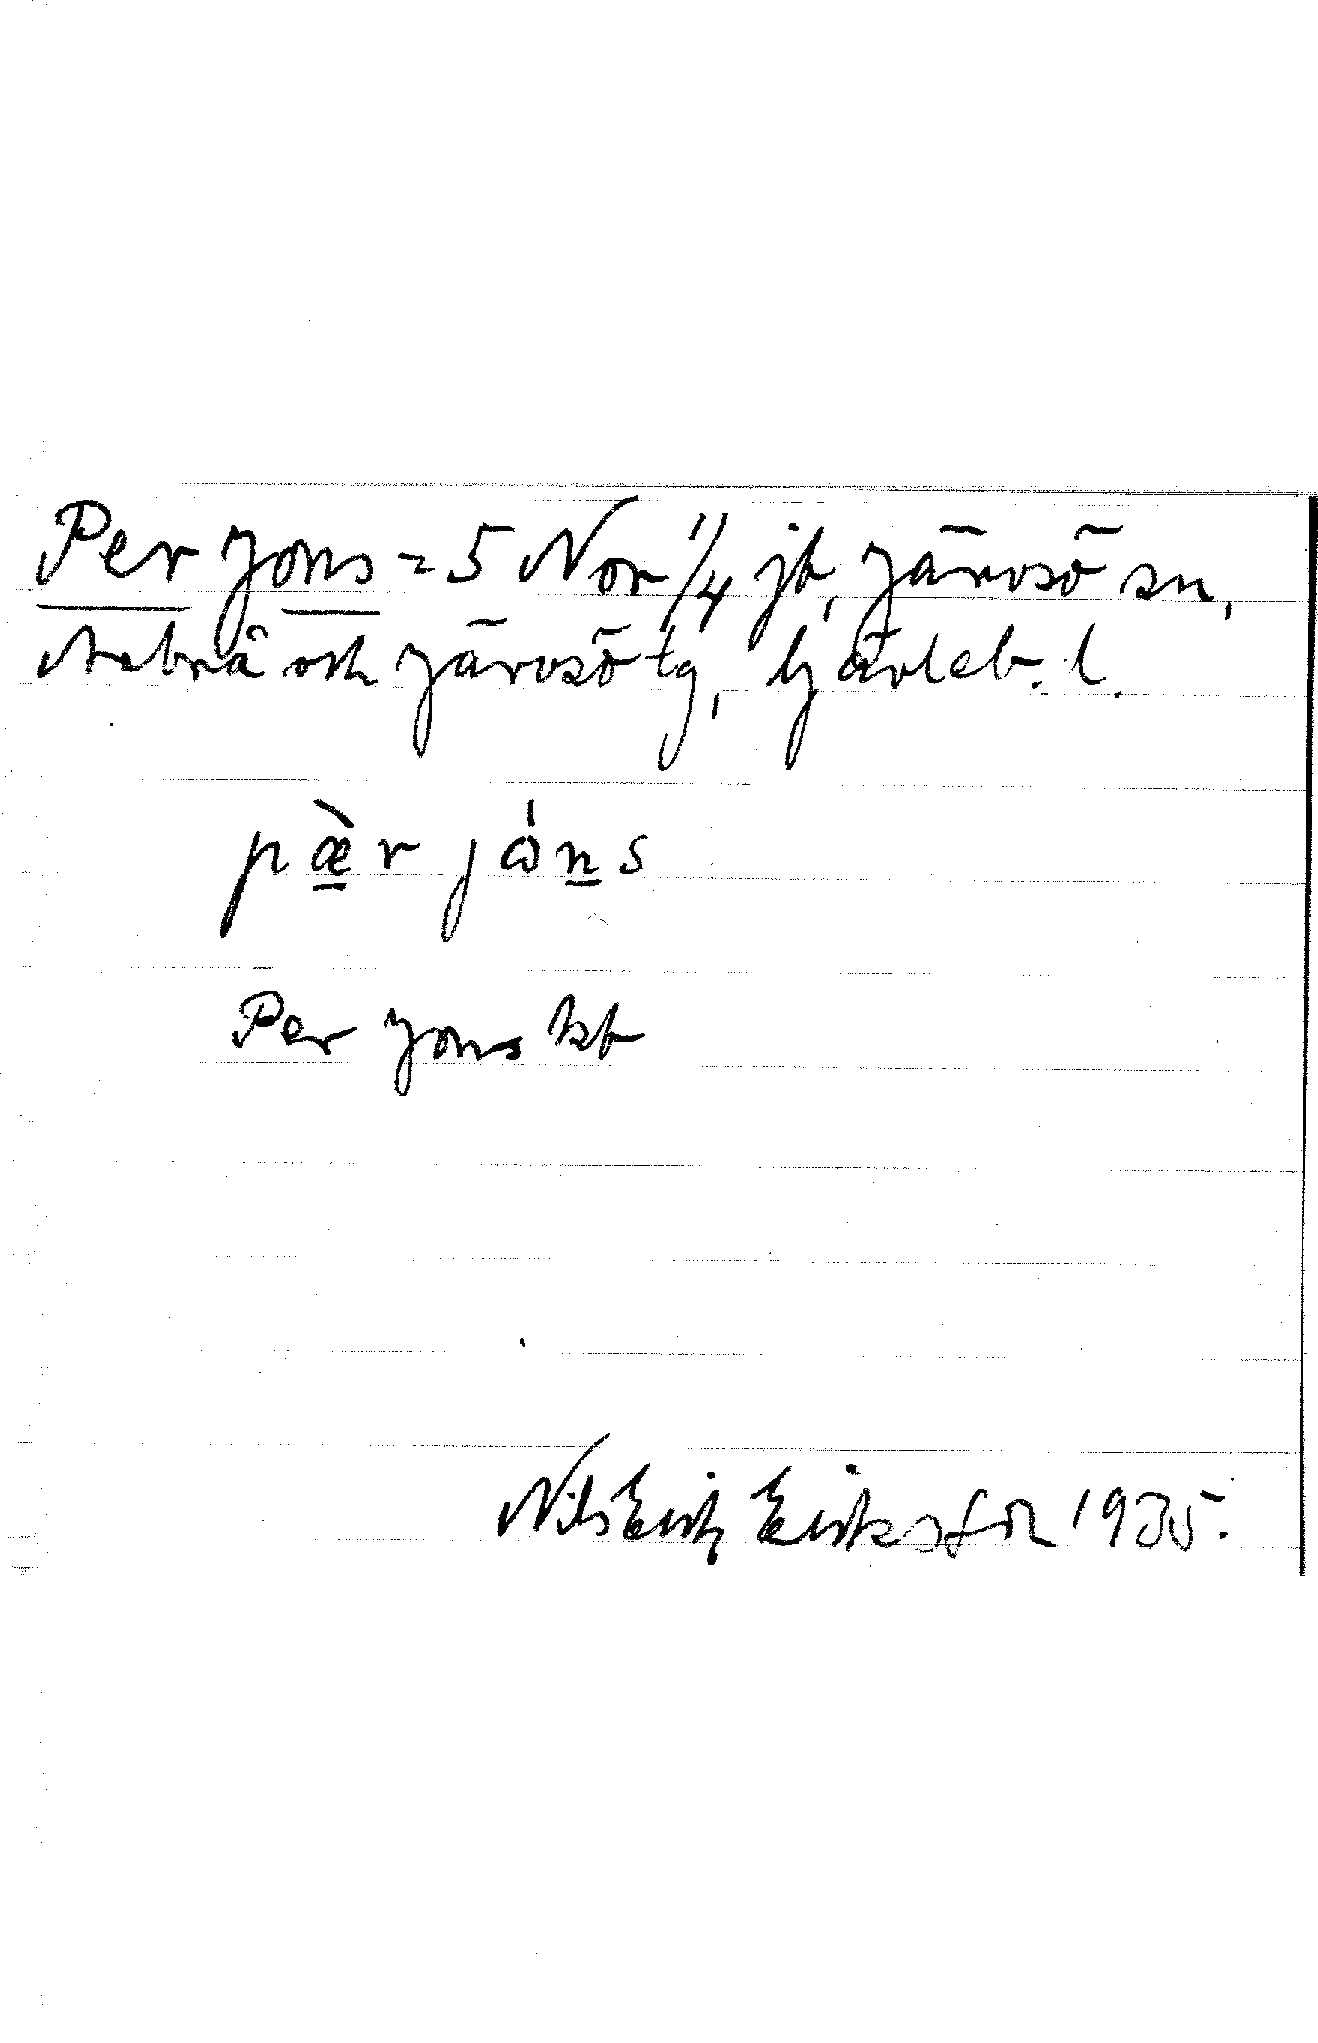 Per Jons = 5 Nor 1/4 jb, Järvsö sn,
Arbrå och Järvsö tg, Gävleb. l.
pæ̀r jón̲s
Per Jons kb
Nils Erik Eriksson 1935.